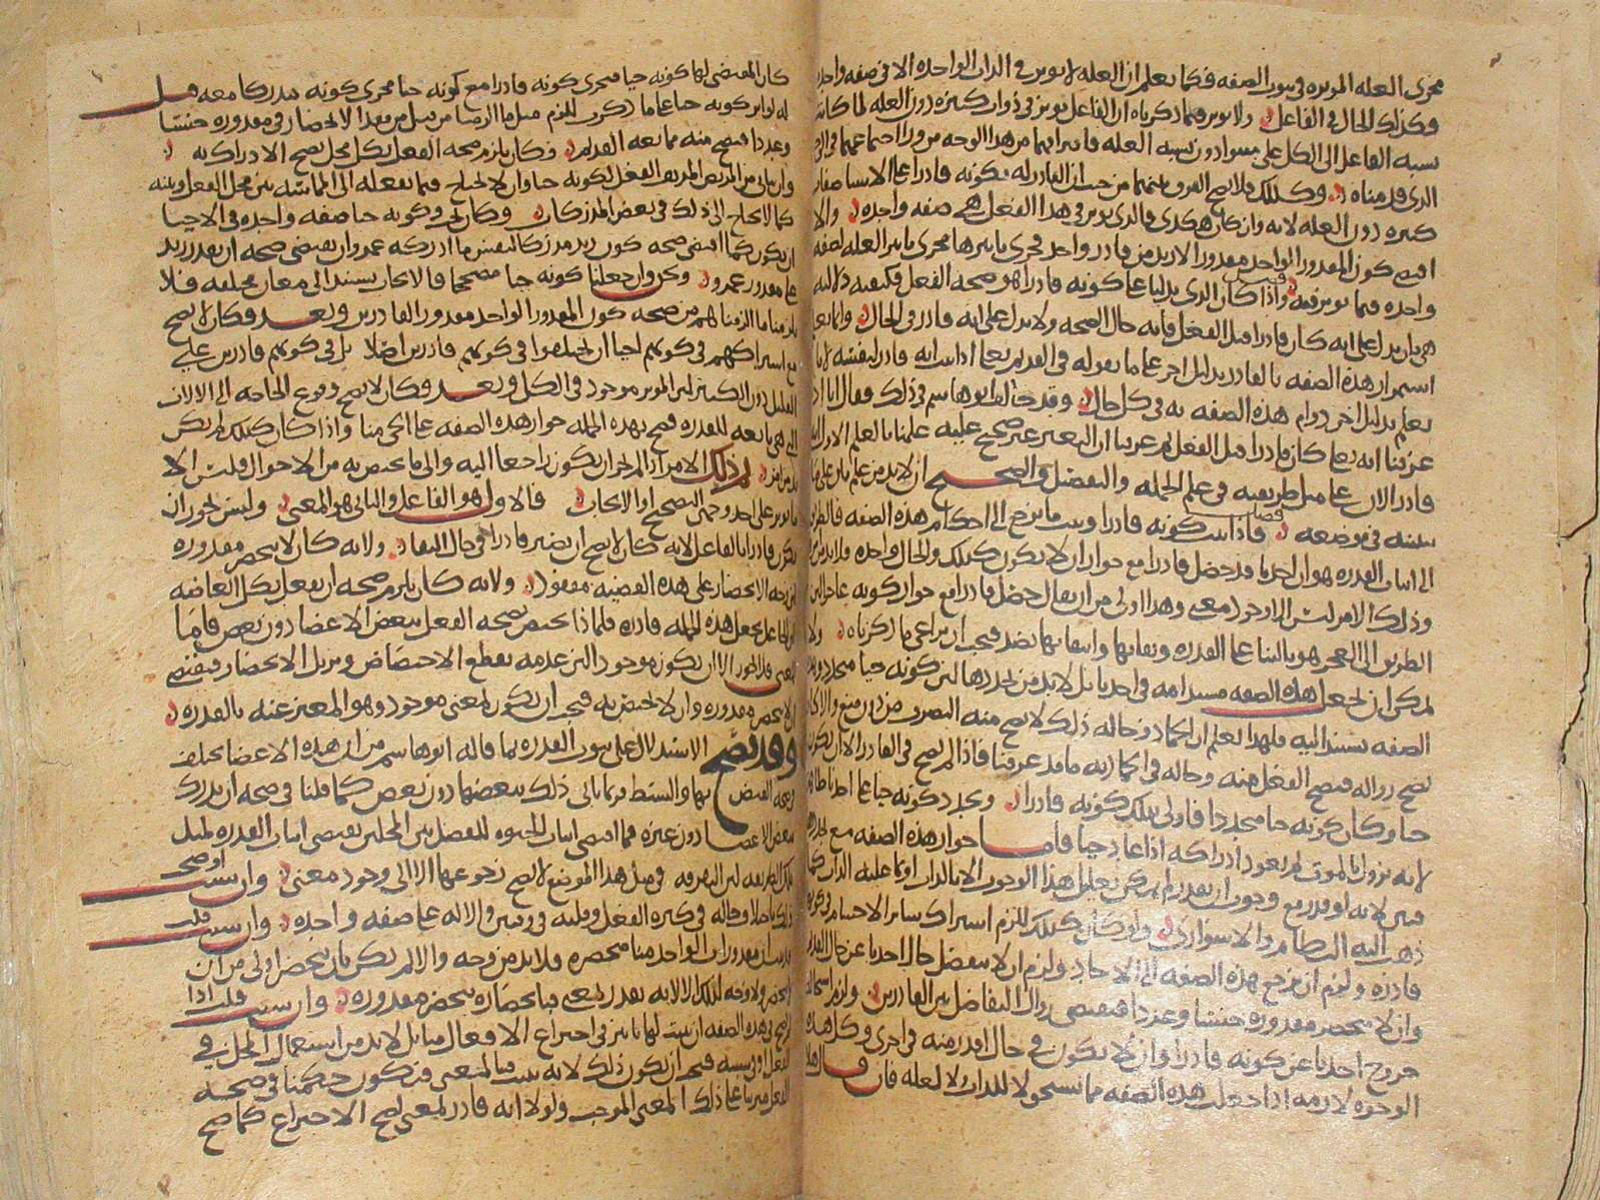 مجرى العله الموثره في ثبوت الصفه فكما نعلم ان العله لا توثر في الذات الواحده الا في صفه واحده
فكذلك الحال في الفاعل ولا يوثر فيما ذكرناه ان الفاعل يوثر في ذوات كثيره دون العله لما كانت
نسبه الفاعل الى الكل على سوا دون نسبه العله
الذي قدمناه وكذلك فلا يصح الفرق بينهما من حيث ان القادر له بكونه قادرا
كثيره دون العله لانه وان كان هكذى فالذي يوثر في هذا الفعل هي صفه واحده والا
اقتضى كون المقدور الواحد مقدورا لازيد من قادر واحد فجرى تاثيرها مجرى تاثير العله لصفه
واحده فيما توثر فيه فصل واذا كان الذي يدلنا على كونه قادرا هو صحه الفعل فكيفيه دلالته
هي بان يدل على انه كان قادرا قبل الفعل فانه حال الصحه ولا يدل على انه قادر في الحال وانما نعلم
استمرار هذه الصفه بالقادر بدليل اخر على ما نقوله في القديم تعالى اذا ثبت انه قادر لنفسه
يعلم بدليل اخر دوام هذه الصفه به في كل حال وقد خالف ابو هاشم في ذلك فقال انا اذا
عرفنا انه تعالى كان قادرا قبل الفعل ثم عرفنا ان التغير غير صحيح عليه علمنا بالعلم الاول انه
قادر الان على مثل طريقته في علم الجمله والتفصيل والصحيح ان لابد من علم ثان على ما
نبينه في موضعه فصل فاذا ثبت كونه قادرا وثبت ما يرجع الى احكام هذه الصفه فالطريق
الى اثبات القدره هو ان احدنا قد حصل قادرا مع جواز ان لا يكون كذلك والحال واحده فلابد من امر
وذلك الامر ليس الا وجود معنى وهذا اولى من ان يقال حصل قادرا مع جواز كونه عاجزا لان
الطريق الى العجز هو بالبنا على القدره وبقايها وانتفايها بضد فيجب ان يراعى ما ذكرناه ولا
يمكن ان نجعل هذه الصفه مستدامه في احدنا بل لابد من تجددها لان كونه حيا متجدد وهذه
الصفه تستند اليه فلهذا نعلم ان الجماد وحاله ذلك لا يصح منه التصرف من دون منع والا كان
يصح زواله فيصح الفعل منه وحاله في الجماديه ما قد عرفنا فاذا لم يصح في القادر الا ان يكون
حيا وكان كونه حيا متجددا فاولى بذلك كونه قادرا وتجدد كونه حيا على احدنا ظاهر
لانه يزول بالموت ثم يعود ادراكه اذا عاد حيا فاما جواز هذه الصفه مع تجددها
فبين لانه لو قدر مع وجوب ان يقدر لم يمكن تعليل هذا الوجوب الا بالذات او ما عليه الذات كما
ذهب اليه النظام والاسواري ولو كان كذلك للزم اشتراك ساير الاجسام في كونها
قادره ولزم ان يرجع هذه الصفه الى الاحاد ولزم ان لا ينفصل حال احدنا عن حال القديم
وان لا ينحصر مقدوره جنسا وعددا فيقتضي زوال التفاضل بين القادرين ولزم استحاله
خروج احدنا عن كونه قادرا وان لا يكون في حال اقدر منه في اخرى وكل هذه
الوجوه لازمه اذا جعلت هذه الصفه مما تستحق لا للذات ولا لعله فان قال هلا
كان المقتضي لها كونه حيا فيجرى كونه قادرا مع كونه حيا مجرى كونه مدركا معه قيل
له لو اثر كونه حيا على ما ذكرت للزم مثل ما الزمنا من قبل من فقد الانحصار في مقدوره جنسا
وعددا فيصح منه ممانعه القديم وكان يلزم صحه الفعل بكل محل يصح الادراك به
وان يتاتى من المريض المدنف الفعل لكونه حيا وان لا يحتاج فيما يفعله الى المماسه بين محل الفعل وبينه
كما لا يحتاج الى ذلك في بعض المدركات وكان يجرى كونه حيا صفه واحده في الاحيا
ان يكون كما اقتضى صحه كون زيد مدركا لنفس ما ادركه عمرو ان يقتضي صحه ان يقدر زيد
على مقدور عمرو ونحن وان جعلنا كونه حيا مصححا فالايجاب يستند الى معان مختلفه فلا
يلزمنا ما الزمناهم من صحه كون المقدور الواحد مقدورا لقادرين وبعد فكان لا يصح
مع اشتراكهم في كونهم احيا ان يختلفوا في كونهم قادرين اصلا بل في كونهم قادرين على
القليل دون الكثير لان الموثر موجود في الكل وبعد فكان لا يصح وقوع الحاجه الى الالات
التي هي تابعه للقدره فصح بهذه الجمله جواز هذه الصفه على الحي منا واذا كان كذلك لم يكن
بد من امر ثم ذلك الامر اذا لم يجز ان يكون راجعا اليه والى ما يختص به من الاحوال فليس الا
ما يوثر على احد وجهي التصحيح او الايجاب فالاول هو الفاعل والثاني هو المعنى وليس يجوز ان
يكون قادرا بالفاعل لانه كان لا يصح ان يصير قادرا في حال البقا ولانه كان لا ينحصر مقدوره
لان وجه الانحصار على هذه القضيه مفقود ولانه كان يلزم صحه ان يفعل بكل اعضايه
لان الفاعل يجعل هذه الجمله قادره فلماذا يختص بصحه الفعل ببعض الاعضا دون بعض فاما
المعنى فلا يجوز الا ان يكون موجودا لان عدمه يقطع الاختصاص ويزيل الانحصار فيقتضي
ان لا ينحصر مقدوره وان لا يختص به فيجب ان يكون لمعنى موجود وهو المعبر عنه بالقدره
وقد يصح الاستدلال على ثبوت القدره بما قاله ابو هاشم من ان هذه الاعضا تختلف
صحه القبض بها والبسط فربما تاتى ذلك ببعضها دون بعض كما قلنا في صحه ان يدرك
ببعض الاعضا دون غيره فما اقتضى اثبات الحيوه للفصل بين المحلين يقتضي اثبات القدره لمثل
تلك الطريقه لان التفرقه في مثل هذا الموضع لا يصح رجوعها الا الى وجود معنى وان شيت اوضحت
ذلك باختلاف حاله في كثره الفعل وقلته في وقتين والاله على صفه واحده وان شيت قلت
قد ثبت ان مقدورات الواحد منا منحصره فلابد من وجه والا لم يكن بان ينحصر اولى من ان
لا ينحصر ولا وجه لذلك الا لانه يقدر لمعنى فبانحصاره ينحصر مقدوره وان شيت قلت اذا
لم يصح في هذه الصفه ان يثبت لها تاثير في اختراع الافعال منا بل لابد من استعمال المحل في
الفعل او في سببه فيجب ان يكون ذلك لانه يثبت فينا لمعنى فيكون حكمنا في صحه
الفعل مرتبا على ذلك المعنى الموجب ولولا انه قادر لمعنى لصح الاختراع كما صح